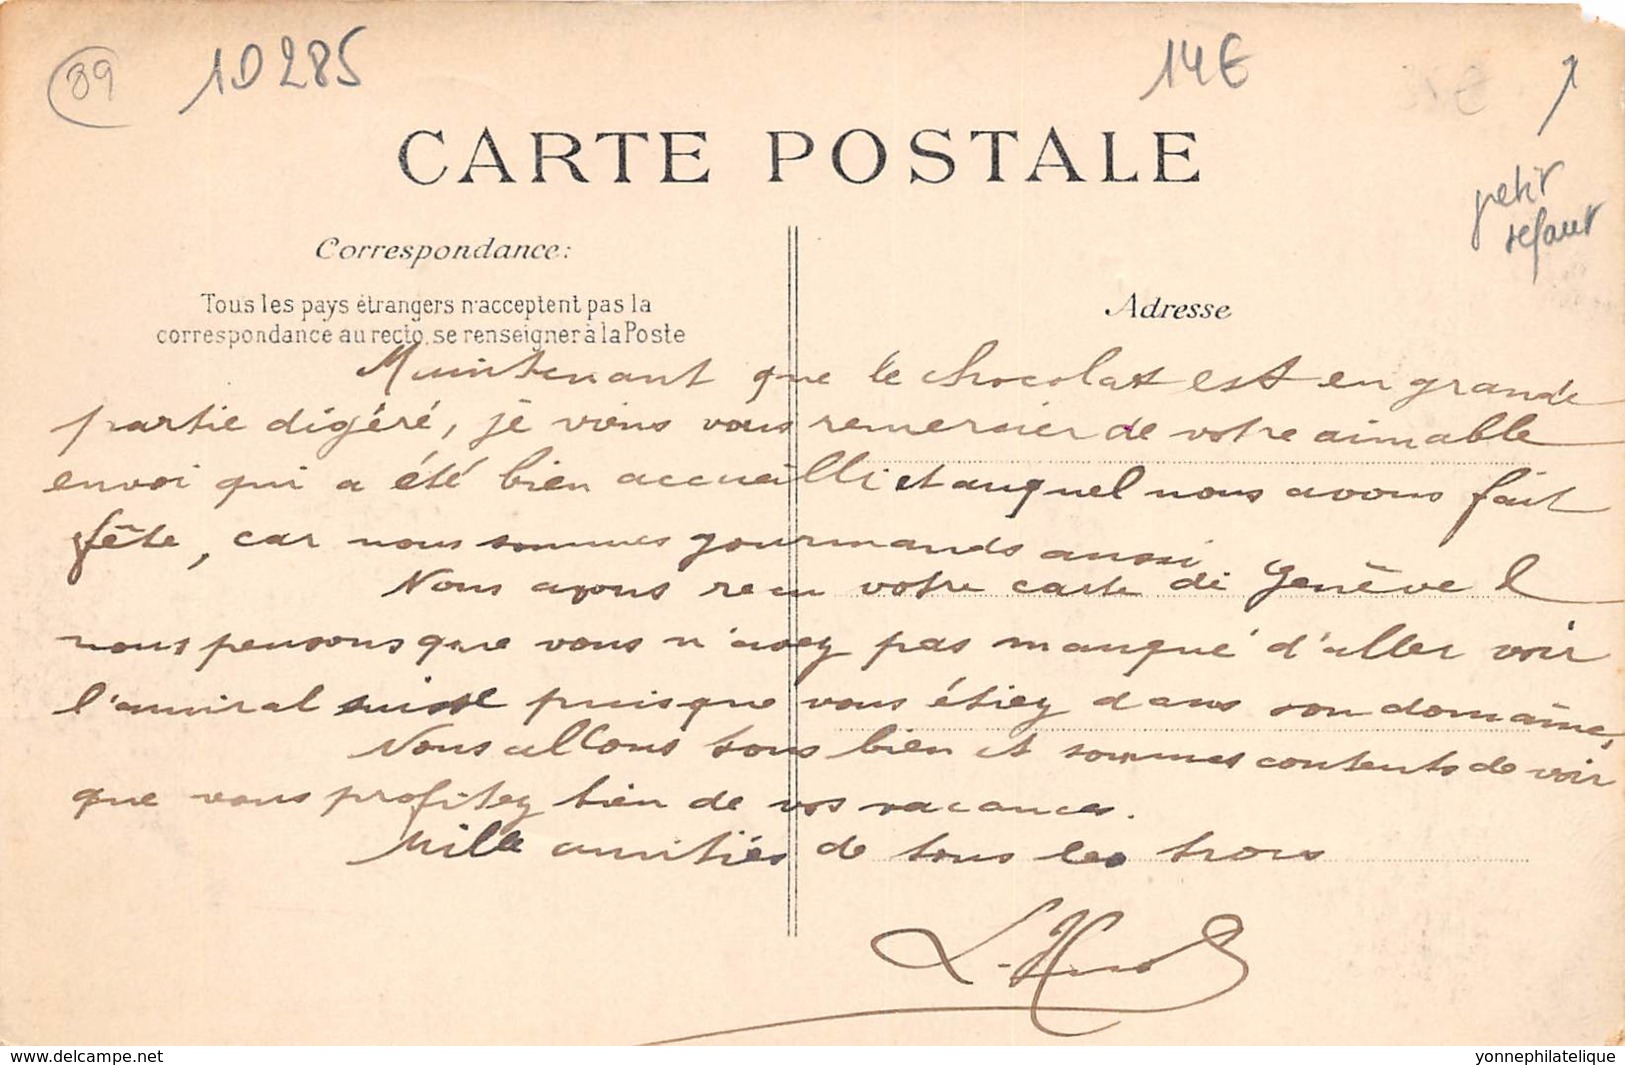 89 10285 14€
petit
defaut
CARTE POSTALE
Correspondance:
Tous les pays étrangers n'acceptent pas la
correspondance au recto, se renseigner à la Poste
Adresse
Maintenant que le chocolat est en grande
partie digéré, je viens vous remercier de votre aimable
envoi qui a été bien accueilli et auquel nous avons fait
fête, car nous sommes gourmands aussi
Nous avons reçu votre carte de Genève &
nous pensons que vous n'avez pas manqué d'aller voir
l'amiral suisse puisque vous étiez dans son domaine,
Nous allons tous bien et sommes contents de voir
que vous profitez bien de vos vacances.
Mille amitiés de tous les trois
www.delcampe.net yonnephilatelique